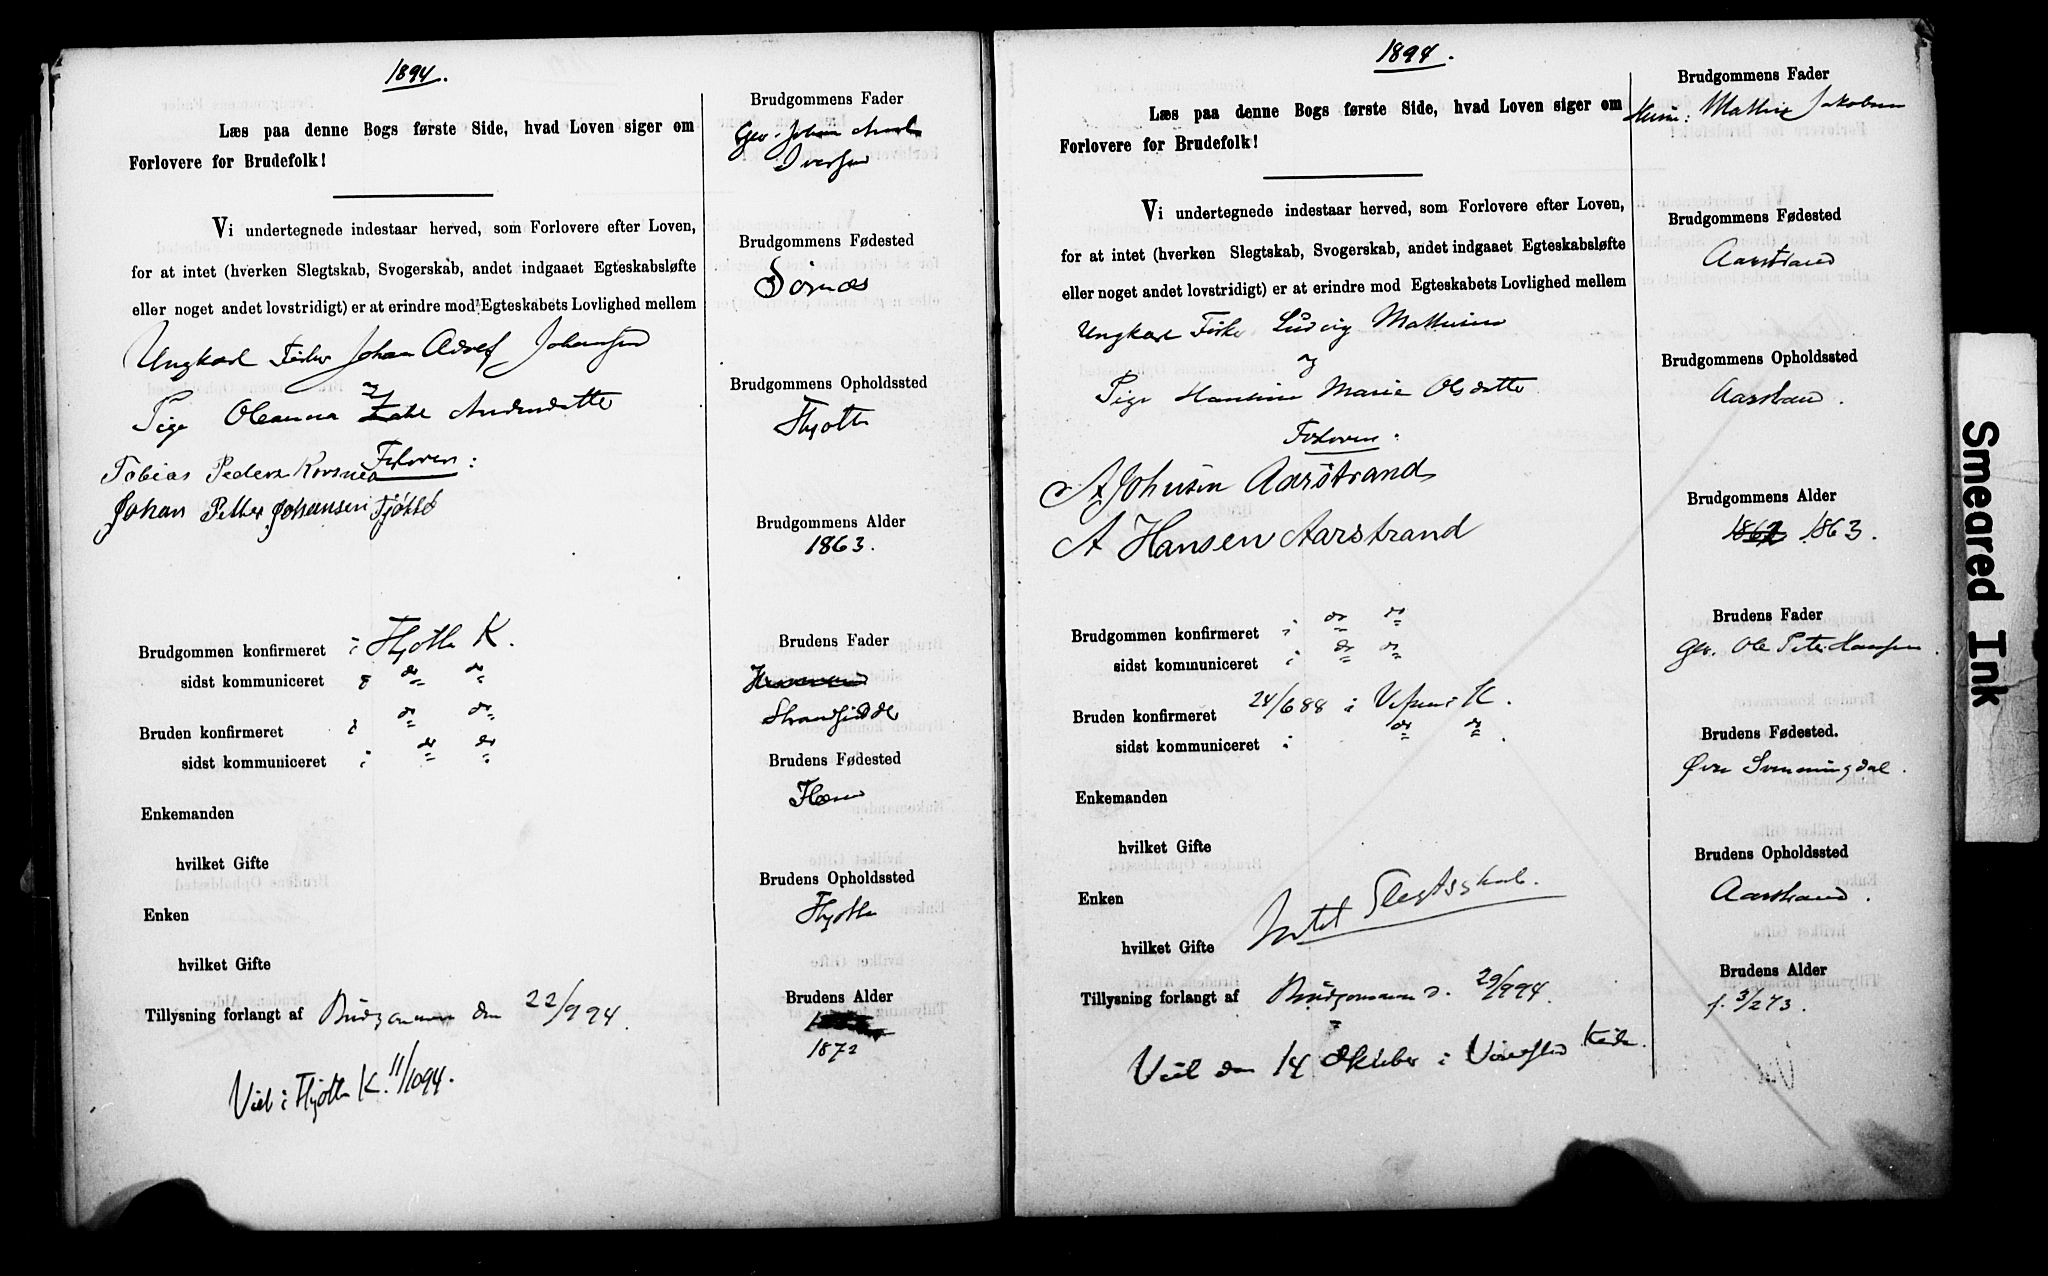 1894.
Læs paa denne Bogs første Side, hvad Loven siger om
Forlovere for Brudefolk!
Vi undertegnede indestaar herved, som Forlovere efter Loven,
for at intet (hverken Slegtskab, Svogerskab, andet indgaaet Egteskabsløfte
eller noget andet lovstridigt) er at erindre mod Egteskabets Lovlighed mellem
Ungkarl Fisker Johan Adolf Johansen
og
Pige Oleanna Andersdatter
Forlovere:
Tobias Peders Korsnes
Johan Petter Johansen Tjøtta
Brudgommen konfirmeret i Thjotta K.
sidst kommuniceret do do
Bruden konfirmeret i do do
sidst kommuniceret i do do
Enkemanden
hvilket Gifte
Enken
hvilket Gifte
Tillysning forlangt af Brudgommen den 22/9 94.
Viet i Thjotta K. 11/10 94.
Brudgommens Fader
Gbr. Johan
Iversen
Brudgommens Fødested
Sørnæs
Brudgommens Opholdssted
Thjotta
Brudgommens Alder
1863.
Brudens Fader
Strandsidder
Brudens Fødested
Brudens Opholdssted
Thjotta
Brudens Alder
1872
1894.
Læs paa denne Bogs første Side, hvad Loven siger om
Forlovere for Brudefolk!
Vi undertegnede indestaar herved, som Forlovere efter Loven,
for at intet (hverken Slegtskab, Svogerskab, andet indgaaet Egteskabsløfte
eller noget andet lovstridigt) er at erindre mod Egteskabets Lovlighed mellem
Ungkarl Fisker Ludvig Mathisen
og
Pige Hansine Marie Olsdatter
Forlovere:
A Johnsen Aarstrand
A Hansen Aarstrand
Brudgommen konfirmeret i do do
sidst kommuniceret i do do
Bruden konfirmeret 24/6 88 i Vefsens K.
sidst kommuniceret i do do
Enkemanden
hvilket Gifte
Enken
hvilket Gifte
Intet Slegtsskab.
Tillysning forlangt af Brudgommen d. 29/9 94.
Viet den 14 Oktober i Kirke.
Brudgommens Fader
Husm: Mathis Jakobsen
Brudgommens Fødested
Aarstrand
Brudgommens Opholdssted
Aarstrand.
Brudgommens Alder
1862 1863.
Brudens Fader
Gbr. Ole Peter Hansen.
Brudens Fødested.
Øvre Svenningdal.
Brudens Opholdssted
Aarstrand.
Brudens Alder
f. 3/2 73.
Smeared Ink